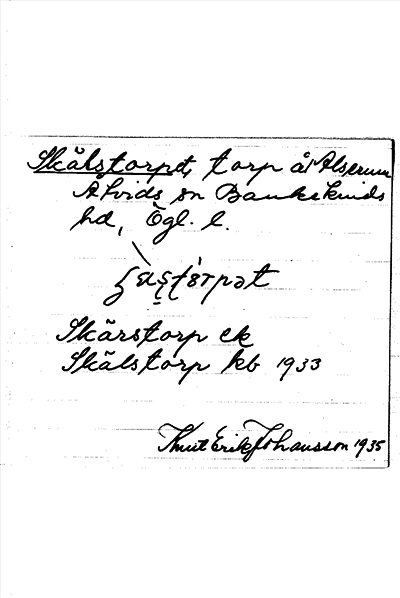 Skälstorpet, torp å Alserum
Åtvids sn Bankekinds
hd, Ögl. l.
Skärstorp ek
Skälstorp kb 1933
Knut Erik Johansson 1935